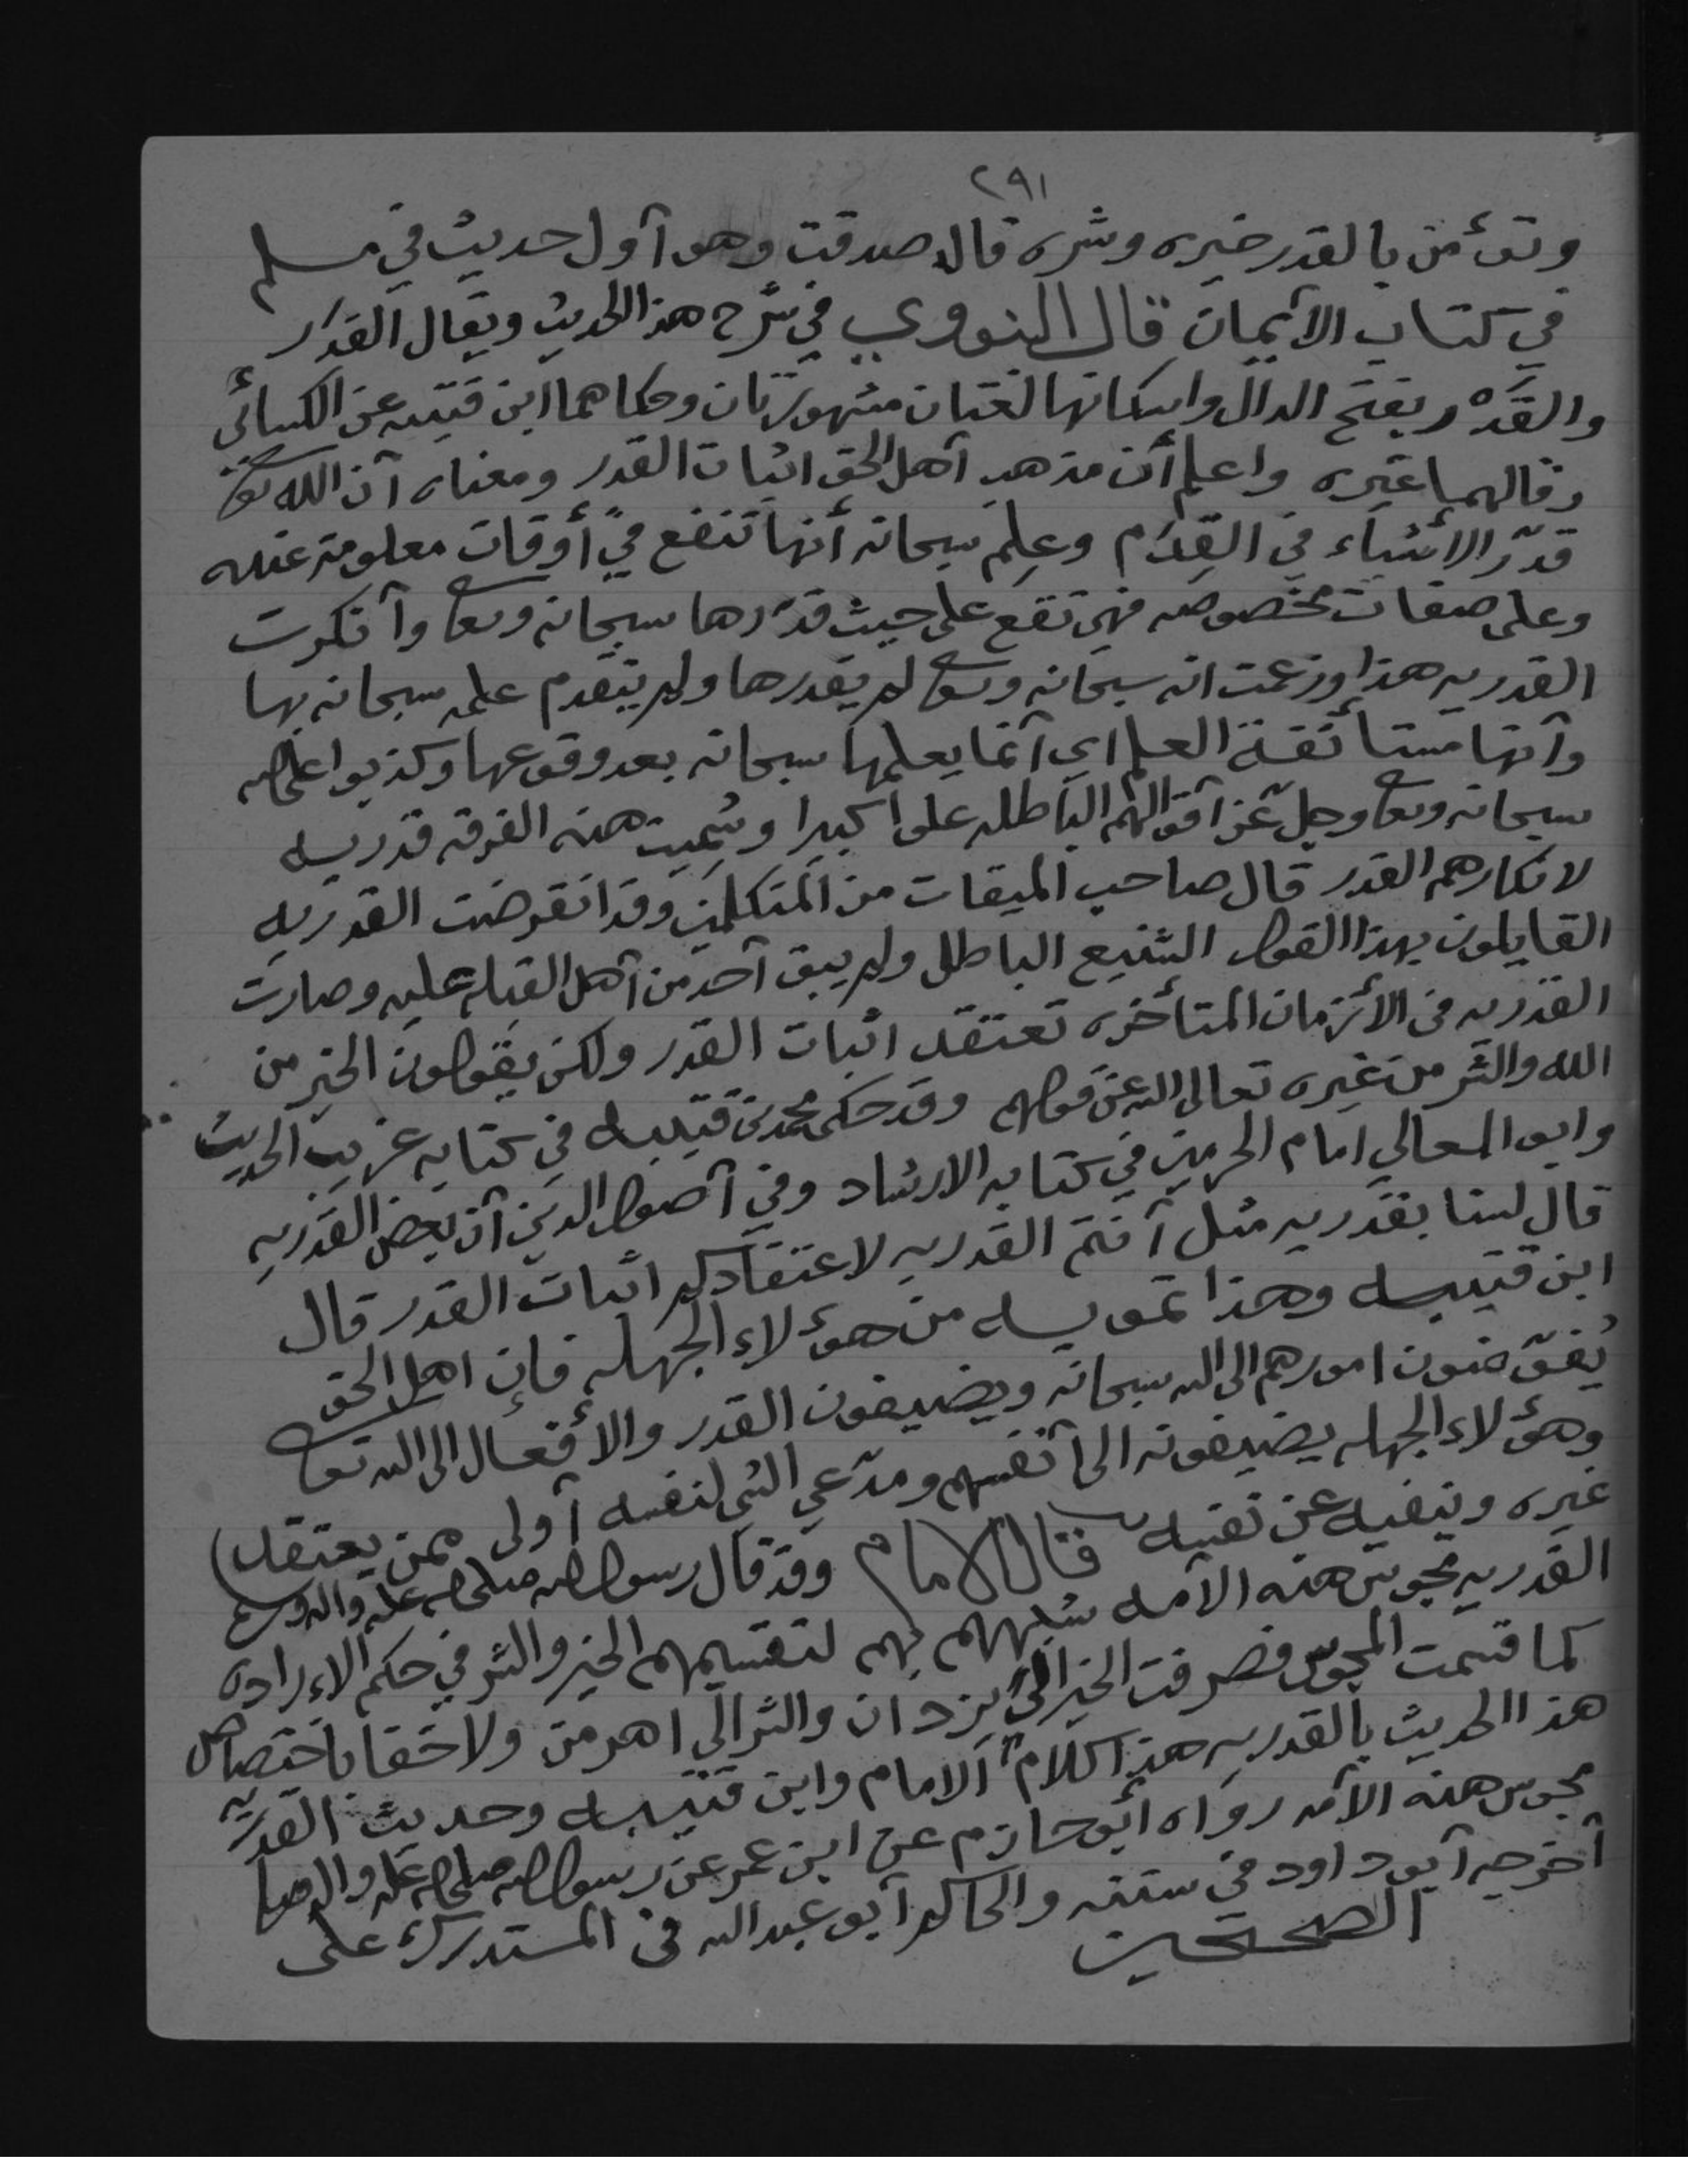 ٢٩١
وتؤمن بالقدر خيره وشره قال صدقت وهو أول حديث في مسلم
في كتاب الأيمان قال النووي في شرح هذا الحديث ويقال القدَر
والقدْر بفتح الدال واسكانها لغتان مشهورتان وحكاهما ابن قتيبه عن الكسائي
وقالهما غيره واعلم أن مذهب أهل الحق اثبات القدر ومعناه أن الله تعالى
قدّر الأشياء في القِدَم وعلِم سبحانه أنها تقع في أوقات معلومة عنده
وعلى صفات مخصوصه فهي تقع على حيث قدّرها سبحانه وتعالى وأنكرت
القدريه هذا وزعمت انه سبحانه وتعالى لم يقدرها ولم يتقدم علمه سبحانه بها
وأنها مستأنفة العلم اي أنما يعلمها سبحانه بعد وقوعها وكذبوا على الله
سبحانه وتعالى وجل عن أقوالهم الباطله علوا كبيرا وسُمّيت هذه الفرقه قدريه
لانكارهم القدر قال صاحب الميقات من المتكلمين وقد انقرضت القدريه
القايلون بهذا القول الشنيع الباطل ولم يبق أحد من أهل القبلة عليه وصارت
القدريه في الأزمان المتأخره تعتقد اثبات القدر ولكن يقولون الخير من
الله والشر من غيره تعالى الله عن قولهم وقد حكى محمد بن قتيبه في كتابه غريب الحديث
وابو المعالي امام الحرمين في كتابه الارشاد وفي أصول الدين أن بعض القدريه
قال لسنا بقدريه مثل أنتم القدريه لاعتقادكم اثبات القدر قال
ابن قتيبه وهذا تمويه من هؤلاء الجهله فإن اهل الحق
يُفوّضون امورهم الى الله سبحانه ويضيفون القدر والأفعال الى الله تعالى
وهؤلاء الجهله يضيفونه الى أنفسهم ومدّعي الشي لنفسه أولى ممن يعتقد
غيره وينفيه عن نفسه قال الامام وقد قال رسول الله صلى الله عليه واله وسلم
القدريه مجوس هذه الأمه شبههم بهم لتقسيمهم الخير والشر في حكم الاراده
كما قسمت المجوس فصرفت الخير الى يزدان والشر الى اهرمن ولا خفا باختصاص
هذا الحديث بالقدريه هذا كلام الامام وابن قتيبه وحديث القدريه
مجوس هذه الأمه رواه أبو حازم عن ابن عمر عن رسول الله صلى الله عليه واله وسلم
أخرجه أبو داود في سننه والحاكم أبو عبد الله في المستدرك على
الصحيحين